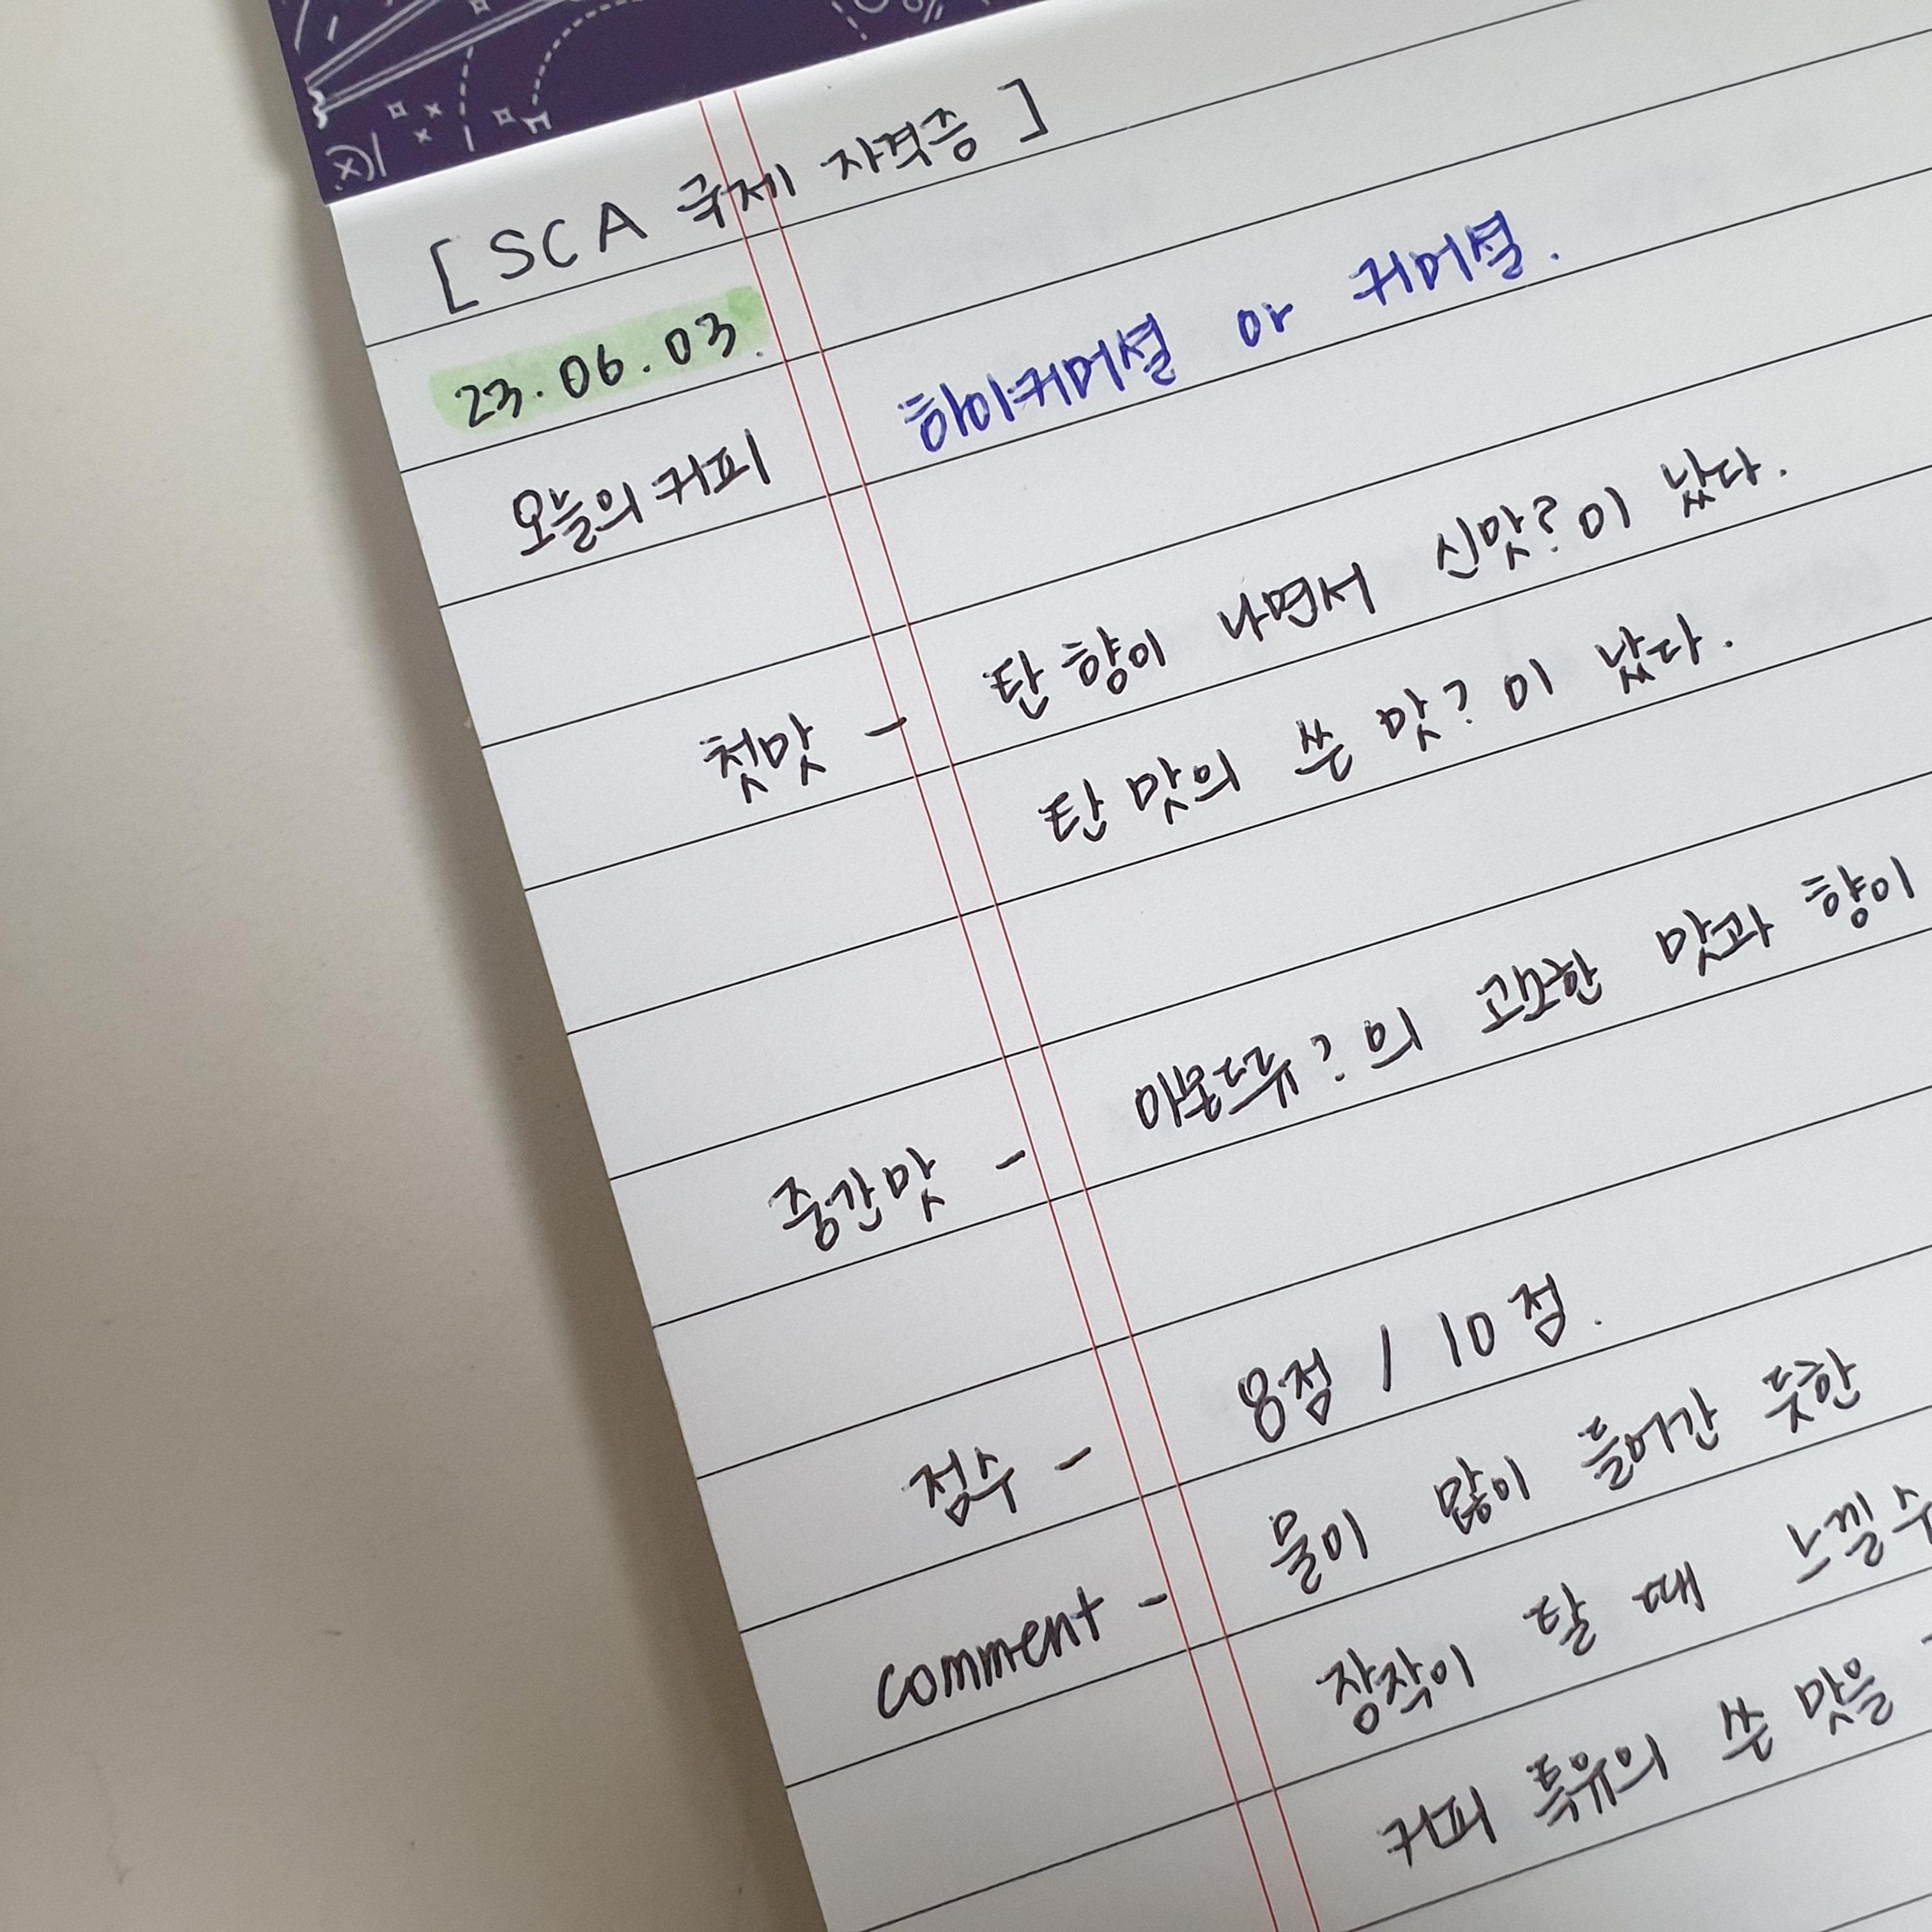 [ SCA 국제 자격증 ]
23.06.03.
오늘의 커피 하이커머셜 or 커머셜.
첫맛 - 탄 향이 나면서 신맛?이 났다.
탄 맛의 쓴 맛?이 났다.
중간맛 - 아몬드류?의 고소한 맛과 향이
점수 - 8점 / 10점.
comment - 물이 많이 들어간 듯한
장작이 탈 때 느낄수
커피 특유의 쓴 맛을